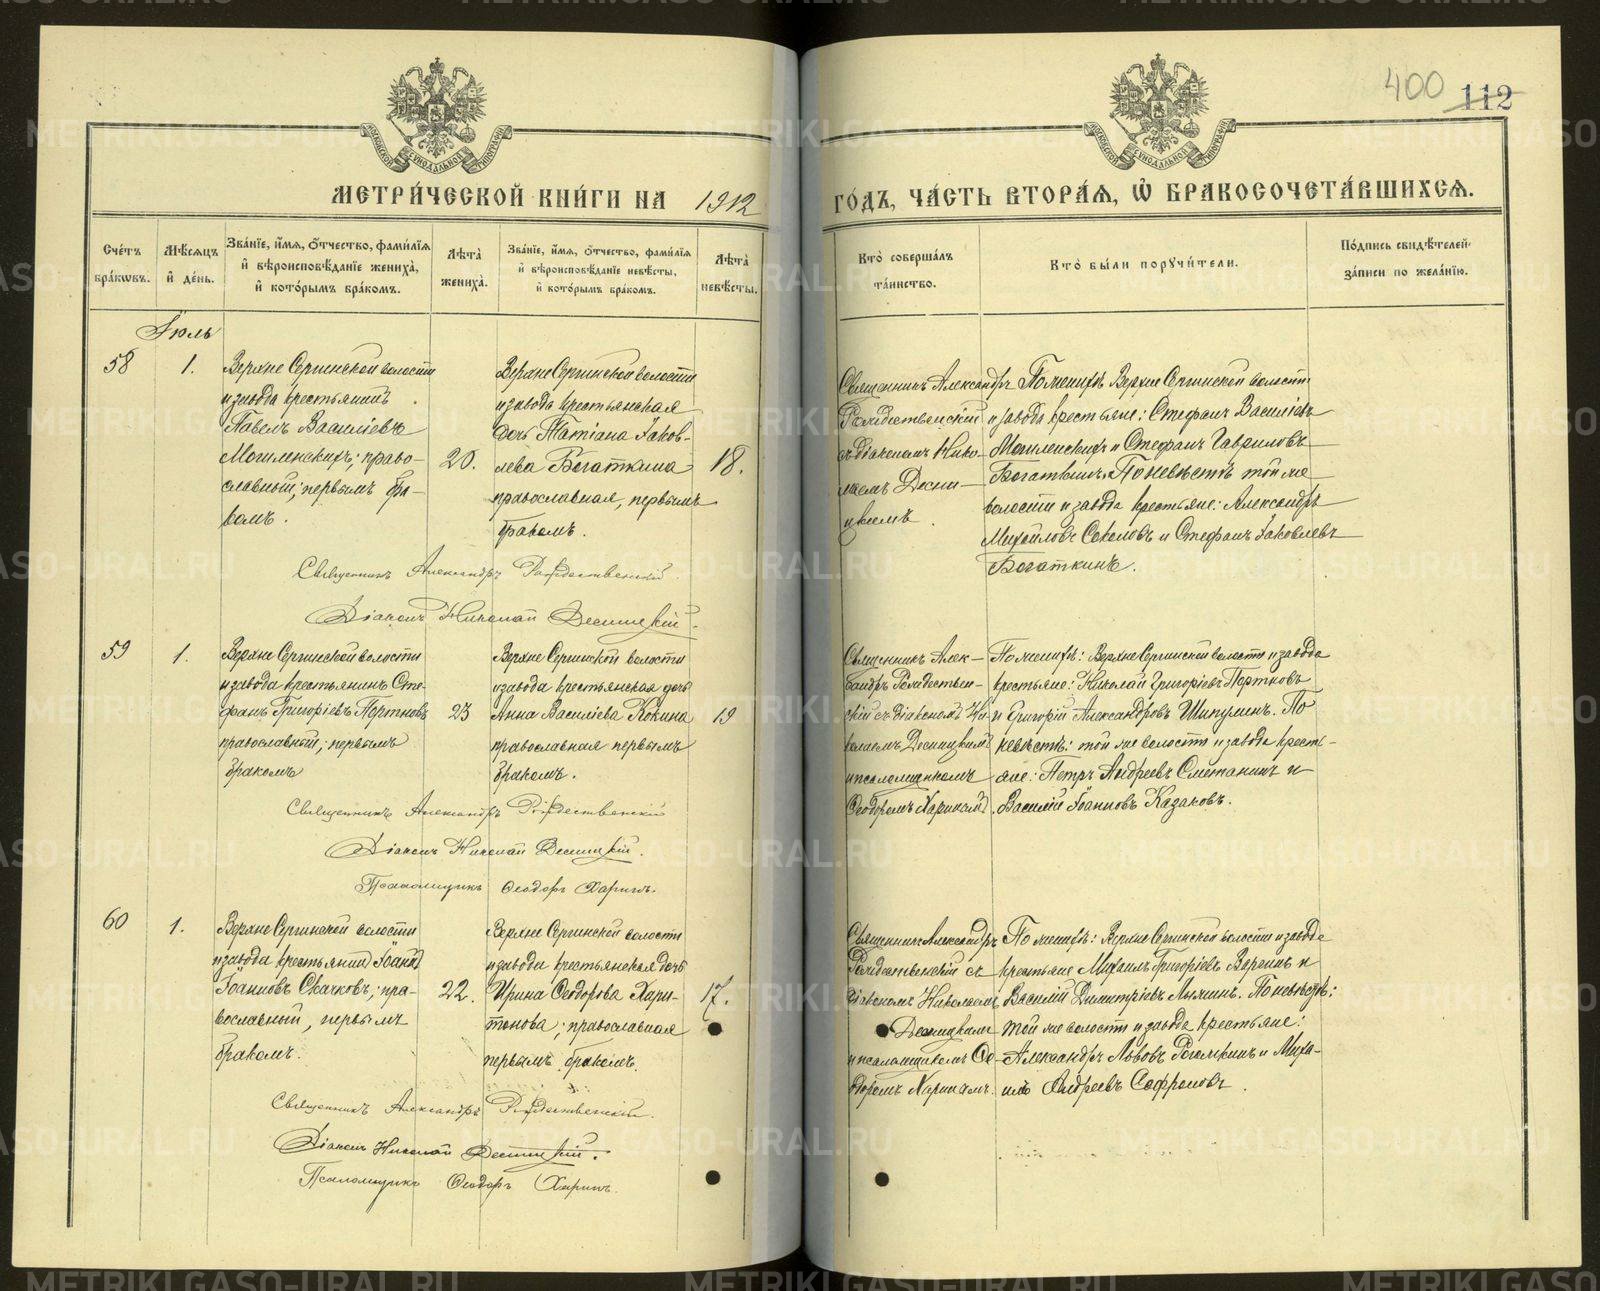 400 112
МЕТРИ́ЧЕСКОЙ КНИ́ГИ НА 1912 ГО́ДЪ, ЧА́СТЬ ВТОРА́Я, Ѡ҆ БРАКОСОЧЕТА́ВШИХСЯ.
МОСКОВСКОЙ СѴНОДАЛЬНОЙ ТИПОГРАФІИ
МОСКОВСКОЙ СѴНОДАЛЬНОЙ ТИПОГРАФІИ
Сче́тъ бра́кѡвъ.
Мѣ́сяцъ и҆ де́нь.
Зва́нїе, и҆́мя, ѻ҆́тчество, фами́лїя
и҆ вѣроисповѣ́данїе жениха̀,
и҆ кото́рымъ бра́комъ.
Лѣта̀ жениха̀.
Зва́нїе, и҆́мя, ѻ҆́тчество, фами́лїя
и҆ вѣроисповѣ́данїе невѣ́сты,
и҆ кото́рымъ бра́комъ.
Лѣта̀ невѣ́сты.
Кто̀ соверша́лъ та́инство.
Кто̀ бы́ли порꙋчи́тели.
По́дпись свидѣ́телей
за́писи по жела́нїю.
Іюль
58
1.
Верхне Сергинской волости
и завода крестьянинъ
Павелъ Василіевъ
Могиленскихъ; право-
славный; первымъ бра-
комъ.
20.
Верхне Сергинской волости
и завода крестьянская
дочь Татіана Іаков-
лева Богаткина
православная, первымъ
бракомъ.
18.
Священникъ Александръ
Рождественскій
съ діакономъ Нико-
лаемъ Десни-
цкимъ.
По женихѣ Верхне Сергинской волости
и завода крестьяне: Стефанъ Василіевъ
Могиленскихъ и Стефанъ Гавриловъ
Богаткинъ. По невѣстѣ той же
волости и завода крестьяне: Александръ
Михайловъ Соколовъ и Стефанъ Іаковлевъ
Богаткинъ.
Священникъ Александръ Рождественскій.
Діаконъ Николай Десницкій.
59
1.
Верхне Сергинской волости
и завода крестьянинъ Сте-
фанъ Григоріевъ Портновъ
православный; первымъ
бракомъ
23
Верхне Сергинской волости
и завода крестьянская дочь
Анна Василіева Кокина
православная первымъ
бракомъ.
19
Священникъ Алек-
сандръ Рождествен-
скій съ діакономъ Ни-
колаемъ Десницкимъ
и псаломщикомъ
Ѳеодоромъ Харинымъ.
По женихѣ: Верхне Сергинской волости и завода
крестьяне: Николай Григоріевъ Портновъ
и Григорій Александровъ Шипулинъ. По
невѣстѣ: той же волости и завода кресть-
яне: Петръ Андреевъ Сметанинъ и
Василій Іоанновъ Казаковъ.
Священникъ Александръ Рождественскій
Діаконъ Николай Десницкій.
Псаломщикъ Ѳеодоръ Харинъ.
60
1.
Верхне Сергинской волости
и завода крестьянинъ Іоаннъ
Іоанновъ Скачковъ; пра-
вославный, первымъ
бракомъ.
22.
Верхне Сергинской волости
и завода крестьянская дочь
Ирина Ѳеодорова Хари-
тонова; православная
первымъ бракомъ.
17.
Священникъ Александръ
Рождественскій съ
діакономъ Николаемъ
Десницкимъ
и псаломщикомъ Ѳе-
одоромъ Харинымъ.
По женихѣ: Верхне Сергинской волости и завода
крестьяне Михаилъ Григоріевъ Воронинъ и
Василій Димитріевъ Мячинъ. По невѣстѣ:
той же волости и завода крестьяне:
Александръ Львовъ Рогожкинъ и Миха-
илъ Андреевъ Софроновъ.
Священникъ Александръ Рождественскій.
Діаконъ Николай Десницкій.
Псаломщикъ Ѳеодоръ Харинъ.
METRIKI.GASO-URAL.RU